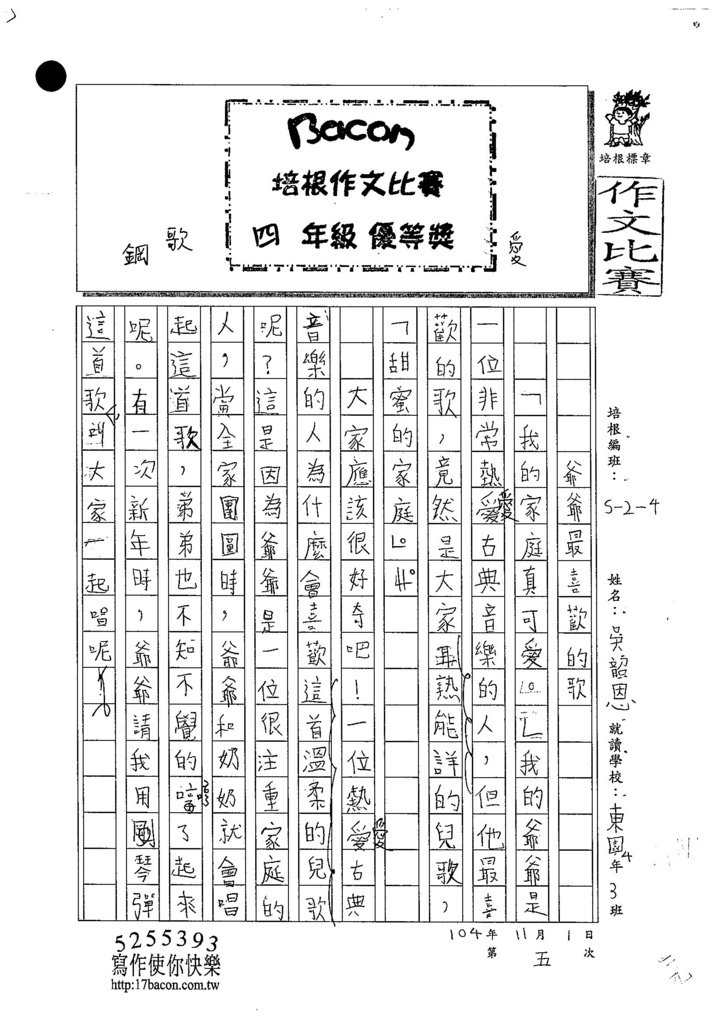 Bacon
培根作文比賽
四年級優等獎
愛
歌
鋼
培根標章
作文比賽
培根編班：S-2-4
姓名：吳韶恩
就讀學校：東園4年3班
104年11月1日
第五次
爺爺最喜歡的歌
「我的家庭真可愛」我的爺爺是
一位非常熱愛古典音樂的人，但他最喜
歡的歌，竟然是大家耳熟能詳的兒歌，
「甜蜜的家庭」。
大家應該很好奇吧！一位熱愛古典
音樂的人為什麼會喜歡這首溫柔的兒歌
呢？這是因為爺爺是一位很注重家庭的
人，當全家團圓時，爺爺和奶奶就會唱
起這首歌，弟弟也不知不覺的了起來
呢。有一次新年時，爺爺請我用剛琴彈
這首歌叫大家一起唱呢！
5255393
寫作使你快樂
http:17bacon.com.tw